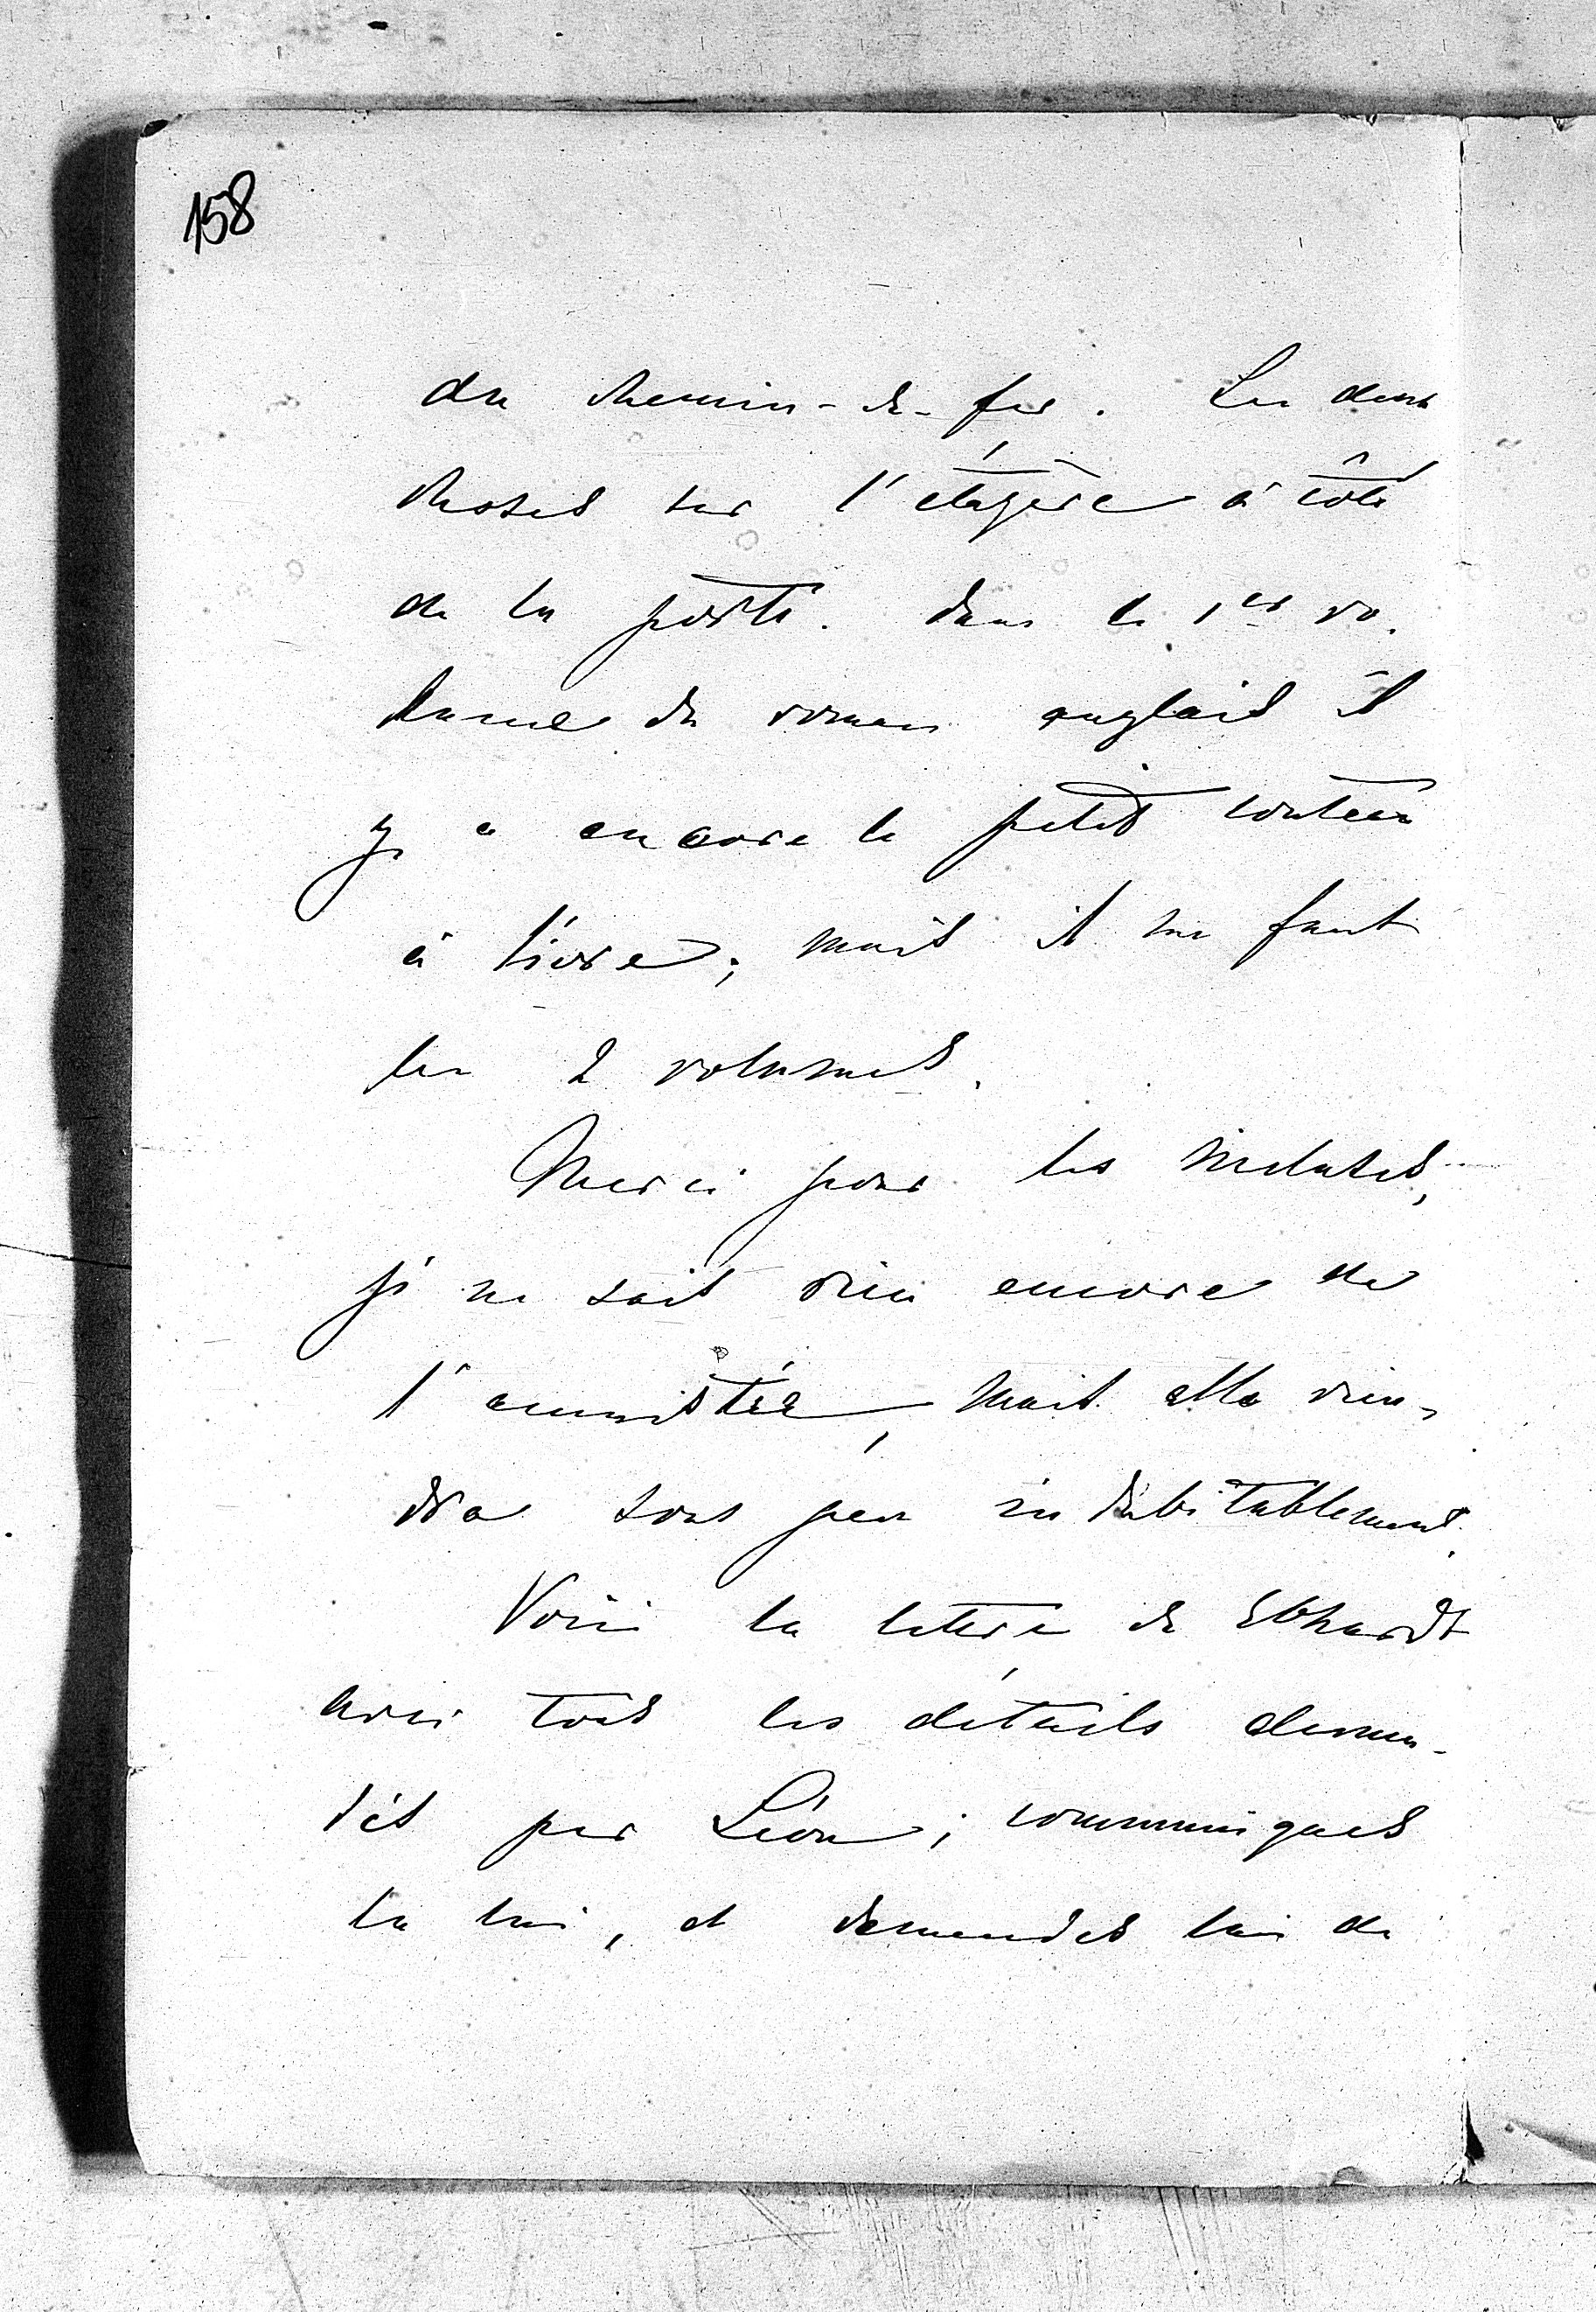 158
du chemin-de-fer. Les deux
choses sur l'étagère à côté
de la porte. Dans le 1er vo-
lume du roman anglais il
y a encore le petit couteau
à livre; mais il me faut
les 2 volumes.
Merci pour les
je ne sais rien encore de
l'amnistie, mais elle vien-
dra sous peu indubitablement.
Voici la lettre de Ebhardt
avec tous les détails deman-
dés par Léon; communiques
la lui, et demandes lui de